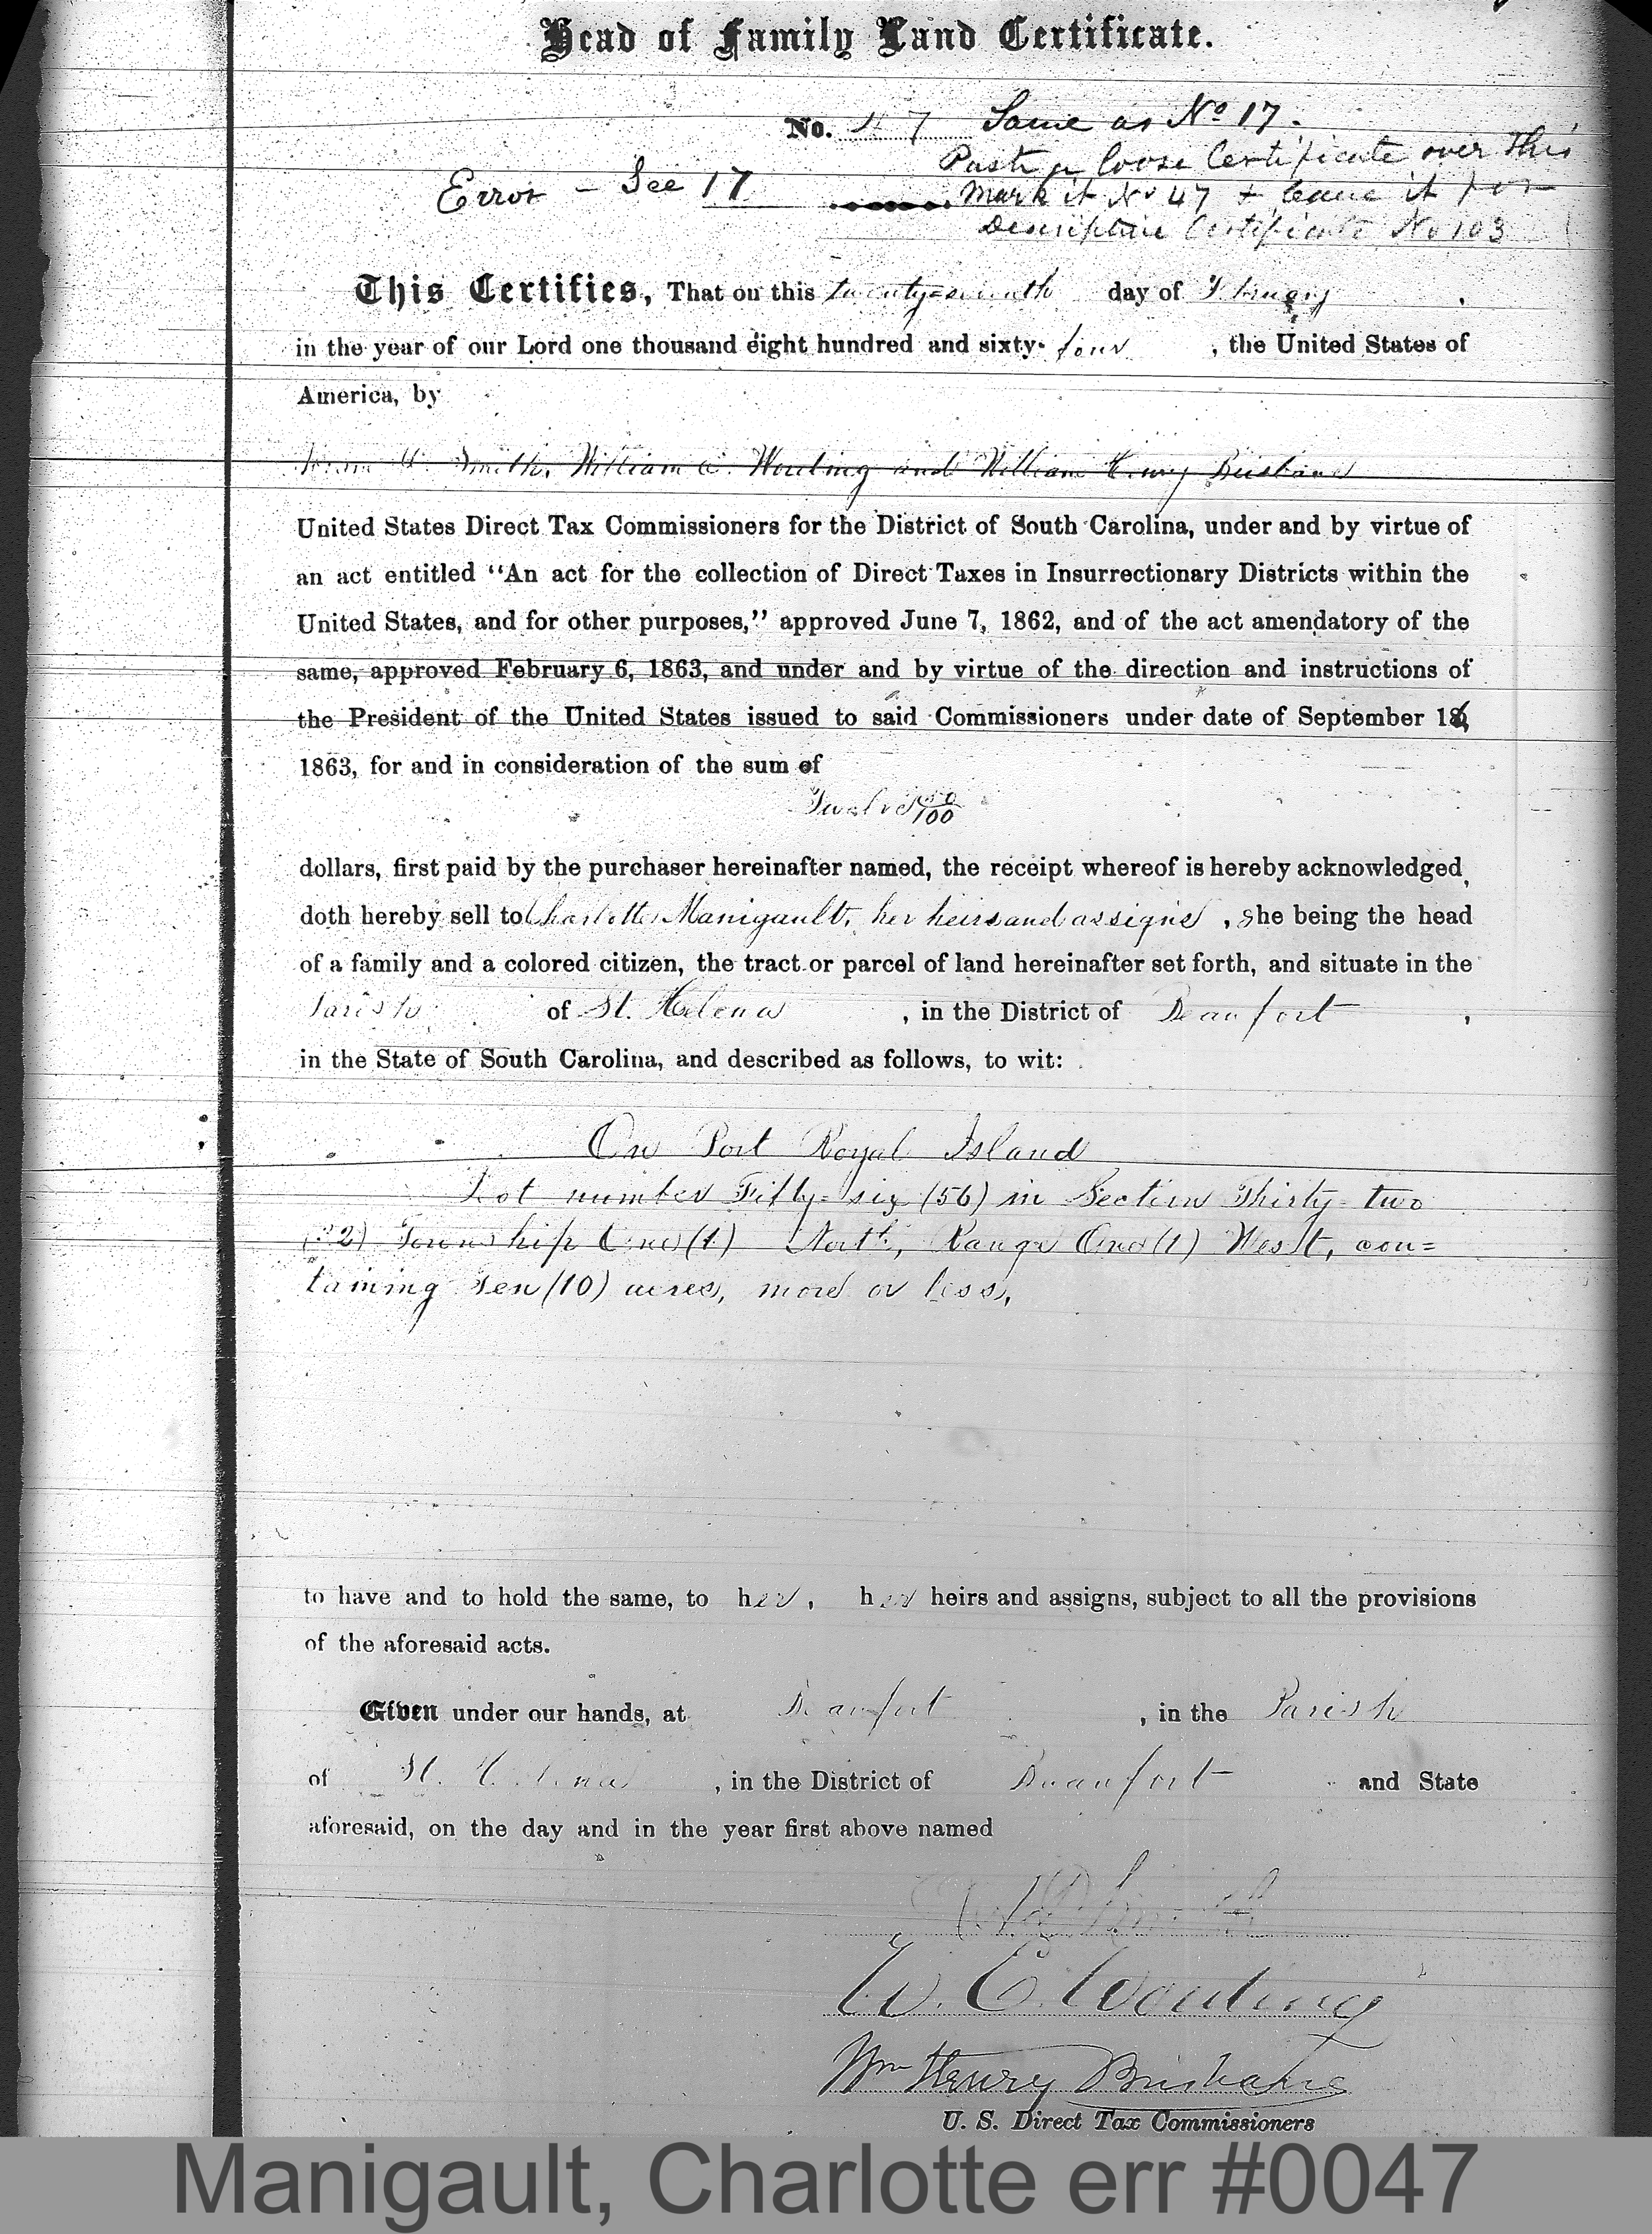 Head of Family Land Certificate.
No. 47 Same as No 17.
Paste a loose Certificate over this
Error - See 17 mark it No 47 & leave it for
Descriptive Certificate No 103
This Certifies, That on this twenty-seventh day of February,
in the year of our Lord one thousand eight hundred and sixty-four, the United States of
America, by
Smith, William E. Wording and William Henry Brisbane
United States Direct Tax Commissioners for the District of South Carolina, under and by virtue of
an act entitled “An act for the collection of Direct Taxes in Insurrectionary Districts within the
United States, and for other purposes,” approved June 7, 1862, and of the act amendatory of the
same, approved February 6, 1863, and under and by virtue of the direction and instructions of
the President of the United States issued to said Commissioners under date of September 16,
1863, for and in consideration of the sum of
Twelve 50/100
dollars, first paid by the purchaser hereinafter named, the receipt whereof is hereby acknowledged,
doth hereby sell to Charlotte Manigault, her heirs and assigns, she being the head
of a family and a colored citizen, the tract or parcel of land hereinafter set forth, and situate in the
Parish of St. Helena, in the District of Beaufort,
in the State of South Carolina, and described as follows, to wit:
On Port Royal Island
Lot number Fifty-six (56) in Section Thirty-two
(32) Township One (1) North, Range One (1) West, con=
taining Ten (10) acres, more or less,
to have and to hold the same, to her, her heirs and assigns, subject to all the provisions
of the aforesaid acts.
Given under our hands, at Beaufort, in the Parish
of St. Helena, in the District of Beaufort and State
aforesaid, on the day and in the year first above named
Smith
W. E. Wording
Wm Henry Brisbane
U. S. Direct Tax Commissioners
Manigault, Charlotte err #0047